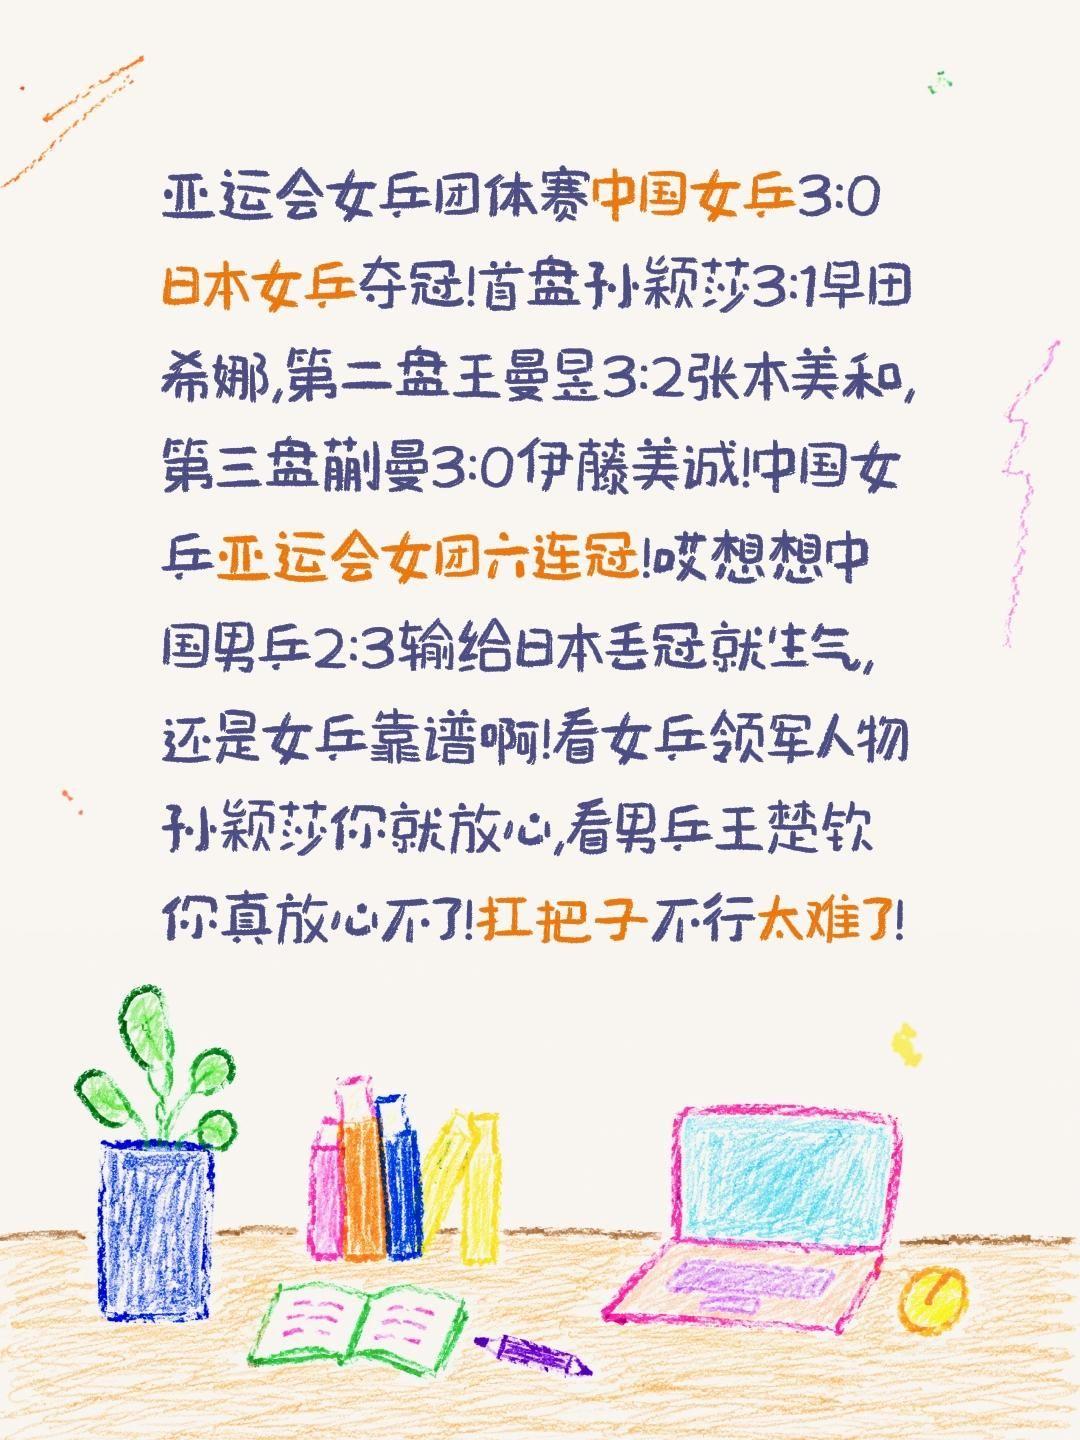 亚运会女乒团体赛中国女乒3:0
日本女乒夺冠!首盘孙颖莎3:1早田
希娜,第二盘王曼昱3:2张本美和,
第三盘蒯曼3:0伊藤美诚!中国女
乒亚运会女团六连冠!哎想想中
国男乒2:3输给日本丢冠就生气,
还是女乒靠谱啊!看女乒领军人物
孙颖莎你就放心,看男乒王楚钦
你真放心不了!扛把子不行太难了!